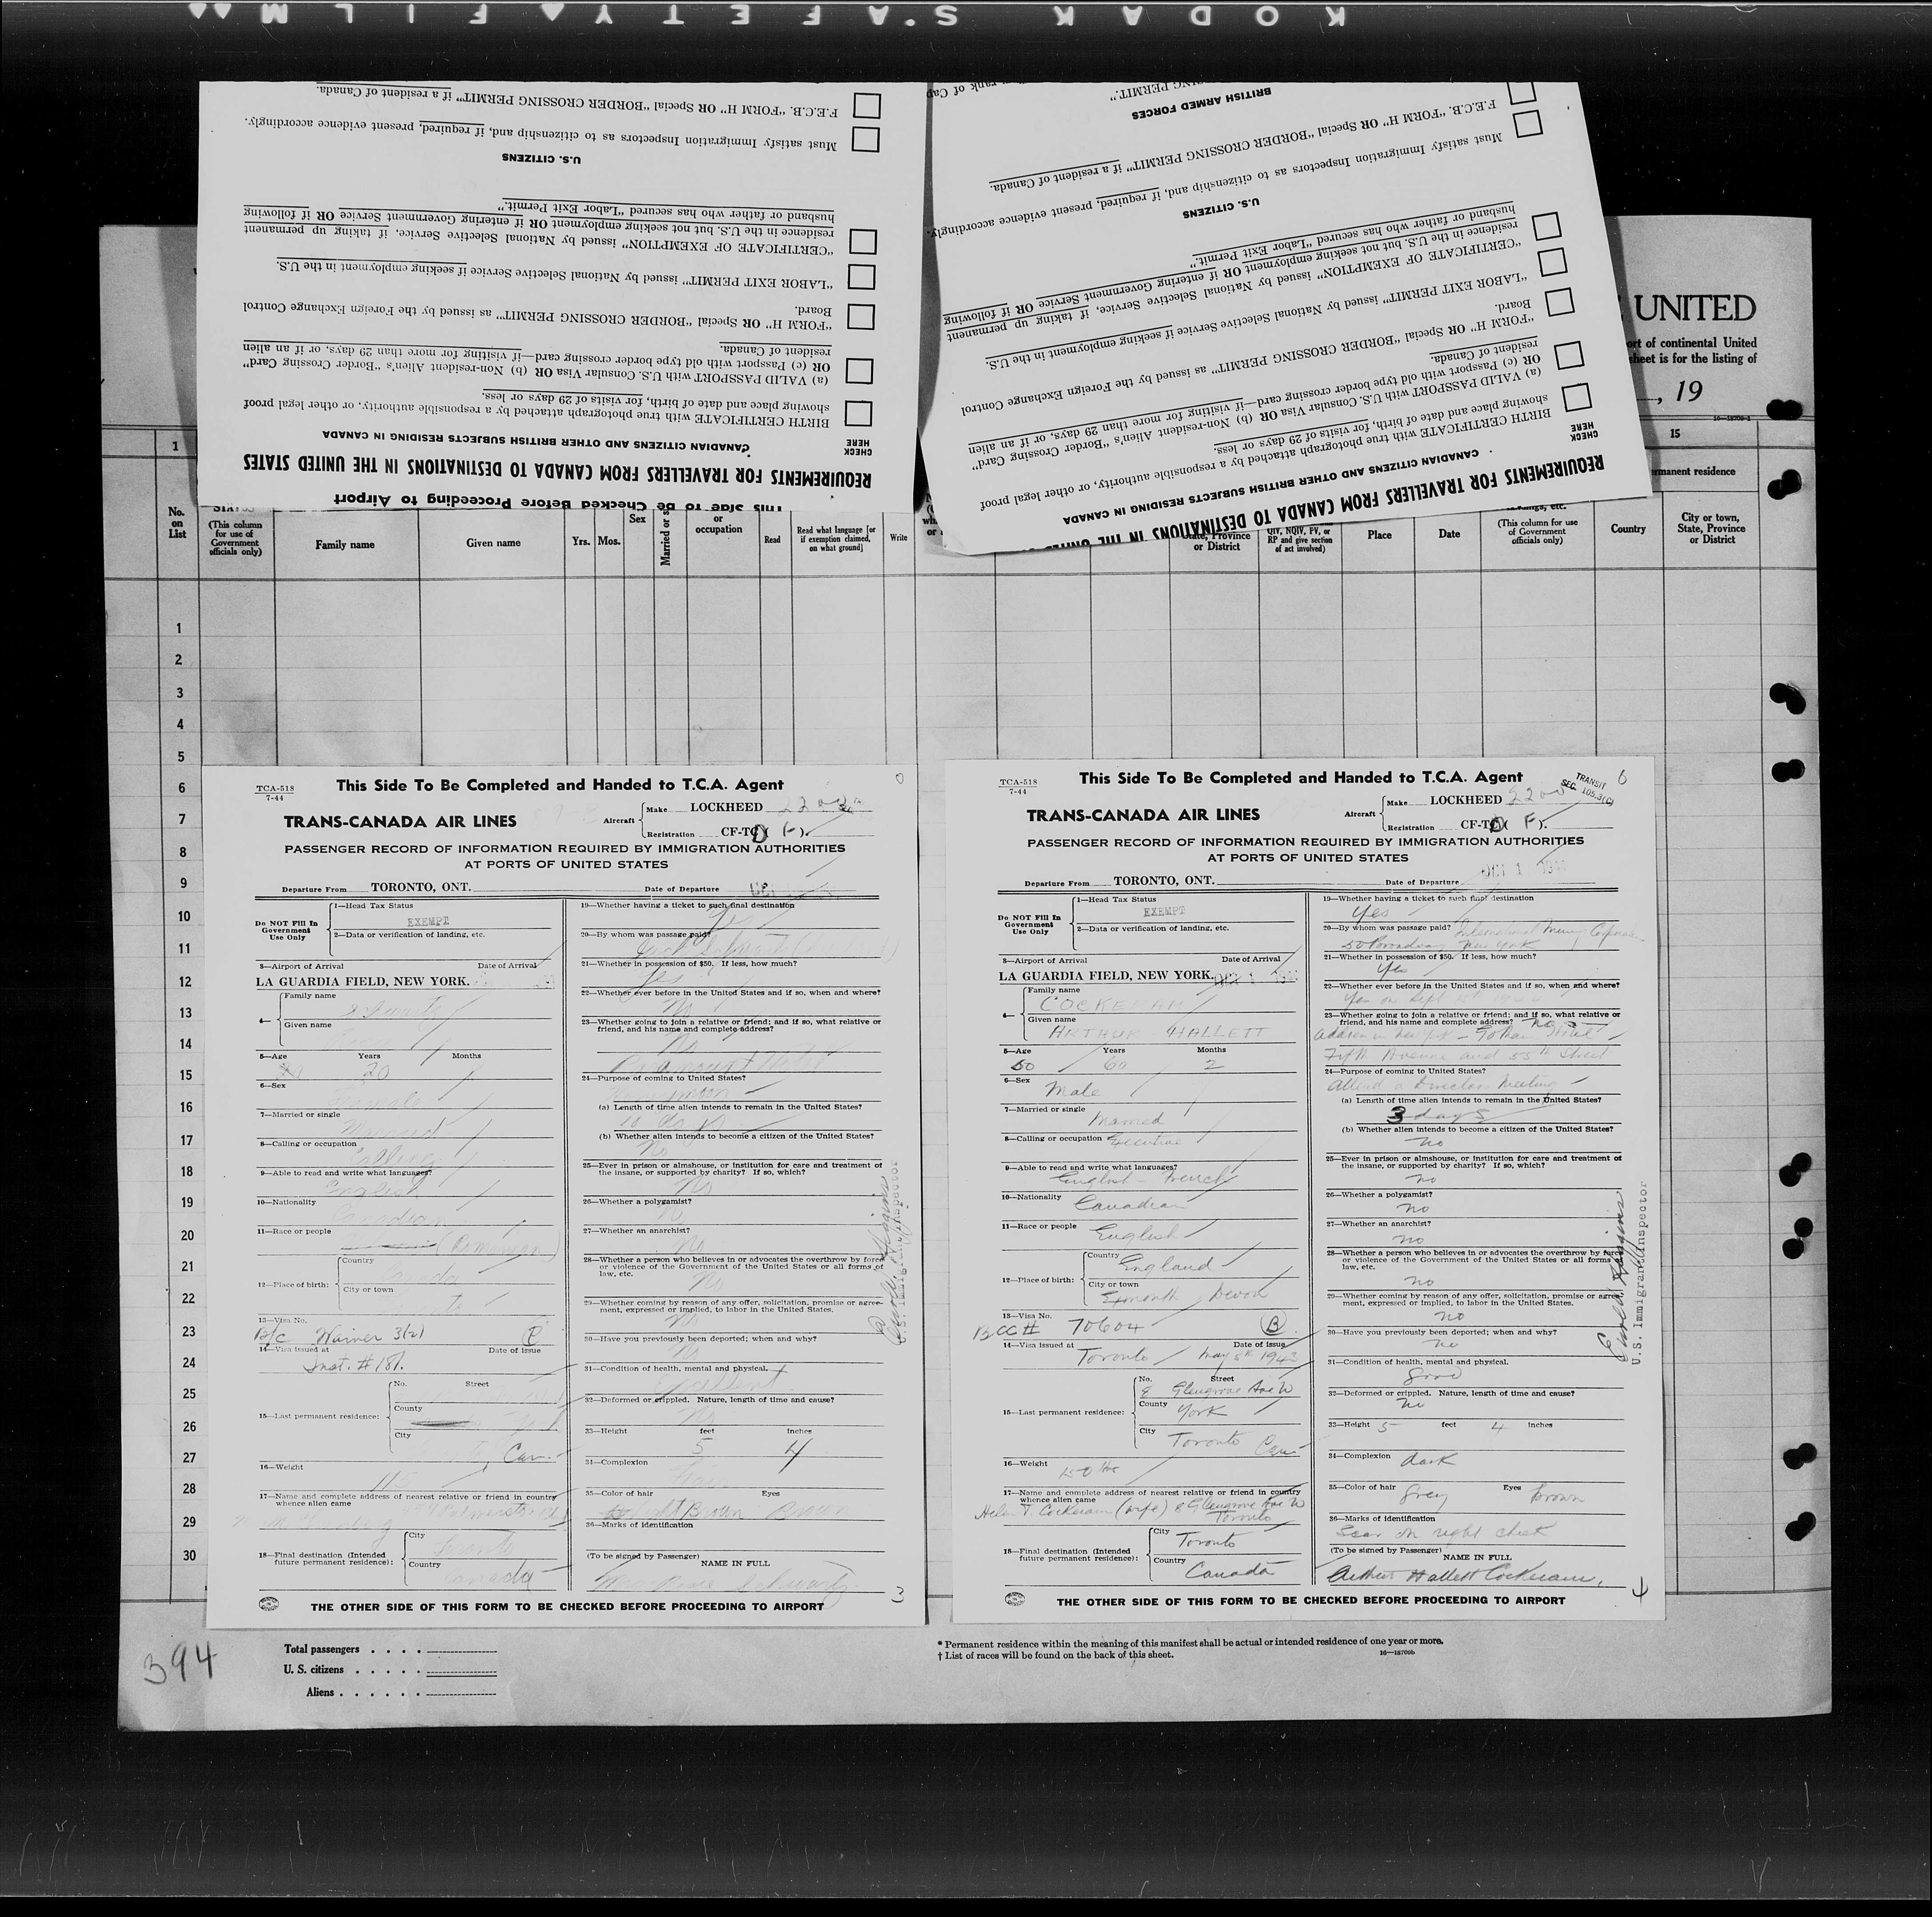 KODAK SAFETY FILM
This Side to be Checked Before Proceeding to Airport
REQUIREMENTS FOR TRAVELLERS FROM CANADA TO DESTINATIONS IN THE UNITED STATES
CHECK HERE
CANADIAN CITIZENS AND OTHER BRITISH SUBJECTS RESIDING IN CANADA
BIRTH CERTIFICATE with true photograph attached by a responsible authority, or other legal proof
showing place and date of birth, for visits of 29 days or less.
(a) VALID PASSPORT with U.S. Consular Visa OR (b) Non-resident Alien's "Border Crossing Card"
OR (c) Passport with old type border crossing card—if visiting for more than 29 days, or if an alien
resident of Canada.
"FORM H" OR Special "BORDER CROSSING PERMIT" as issued by the Foreign Exchange Control
Board.
"LABOR EXIT PERMIT" issued by National Selective Service if seeking employment in the U.S.
"CERTIFICATE OF EXEMPTION" issued by National Selective Service, if taking up permanent
residence in the U.S. but not seeking employment OR if entering Government Service OR if following
husband or father who has secured "Labor Exit Permit."
U.S. CITIZENS
Must satisfy Immigration Inspectors as to citizenship and, if required, present evidence accordingly.
F.E.C.B. "FORM H" OR Special "BORDER CROSSING PERMIT" if a resident of Canada.
REQUIREMENTS FOR TRAVELLERS FROM CANADA TO DESTINATIONS IN THE UNITED STATES
CHECK HERE
CANADIAN CITIZENS AND OTHER BRITISH SUBJECTS RESIDING IN CANADA
BIRTH CERTIFICATE with true photograph attached by a responsible authority, or other legal proof
showing place and date of birth, for visits of 29 days or less.
(a) VALID PASSPORT with U.S. Consular Visa OR (b) Non-resident Alien's "Border Crossing Card"
OR (c) Passport with old type border crossing card—if visiting for more than 29 days, or if an alien
resident of Canada.
"FORM H" OR Special "BORDER CROSSING PERMIT" as issued by the Foreign Exchange Control
Board.
"LABOR EXIT PERMIT" issued by National Selective Service if seeking employment in the U.S.
"CERTIFICATE OF EXEMPTION" issued by National Selective Service, if taking up permanent
residence in the U.S. but not seeking employment OR if entering Government Service OR if following
husband or father who has secured "Labor Exit Permit."
U.S. CITIZENS
Must satisfy Immigration Inspectors as to citizenship and, if required, present evidence accordingly.
F.E.C.B. "FORM H" OR Special "BORDER CROSSING PERMIT" if a resident of Canada.
BRITISH ARMED FORCES
UNITED
ort of continental United
sheet is for the listing of
, 19
1
15
rmanent residence
No. on List
(This column for use of Government officials only)
Family name
Given name
Yrs.
Mos.
Sex
Married or s
or occupation
Read
Read what language [or if exemption claimed, on what ground]
Write
State, Province or District
QIV, NQIV, PV, or RP and give section of act involved)
Place
Date
(This column for use of Government officials only)
Country
City or town, State, Province or District
1
2
3
4
5
6
7
8
9
10
11
12
13
14
15
16
17
18
19
20
21
22
23
24
25
26
27
28
29
30
TCA-518
7-44
This Side To Be Completed and Handed to T.C.A. Agent
TRANS-CANADA AIR LINES
Aircraft
Make LOCKHEED
Registration CF-TC( F ).
PASSENGER RECORD OF INFORMATION REQUIRED BY IMMIGRATION AUTHORITIES
AT PORTS OF UNITED STATES
Departure From TORONTO, ONT. Date of Departure OCT
Do NOT Fill In Government Use Only
1—Head Tax Status
EXEMPT
2—Data or verification of landing, etc.
3—Airport of Arrival Date of Arrival
LA GUARDIA FIELD, NEW YORK.
4—
Family name
Given name
5—Age Years Months
20
6—Sex
Female
7—Married or single
Married
8—Calling or occupation
9—Able to read and write what languages?
English
10—Nationality
Canadian
11—Race or people
12—Place of birth:
Country
City or town
13—Visa No.
B/C Waiver 3(2)
14—Visa issued at Date of issue
Inst. # 181.
15—Last permanent residence:
No. Street
County
City
Can.
16—Weight
115
17—Name and complete address of nearest relative or friend in country
whence alien came
18—Final destination (Intended
future permanent residence):
City
Toronto
Country
Canada
19—Whether having a ticket to such final destination
Yes
20—By whom was passage paid?
21—Whether in possession of $50. If less, how much?
Yes
22—Whether ever before in the United States and if so, when and where?
No
23—Whether going to join a relative or friend; and if so, what relative or
friend, and his name and complete address?
No
24—Purpose of coming to United States?
(a) Length of time alien intends to remain in the United States?
10 days
(b) Whether alien intends to become a citizen of the United States?
No
25—Ever in prison or almshouse, or institution for care and treatment of
the insane, or supported by charity? If so, which?
No
26—Whether a polygamist?
No
27—Whether an anarchist?
No
28—Whether a person who believes in or advocates the overthrow by force
or violence of the Government of the United States or all forms of
law, etc.
No
29—Whether coming by reason of any offer, solicitation, promise or agree-
ment, expressed or implied, to labor in the United States.
No
30—Have you previously been deported; when and why?
No
31—Condition of health, mental and physical.
Excellent
32—Deformed or crippled. Nature, length of time and cause?
No
33—Height feet inches
5 4
34—Complexion
Fair
35—Color of hair Eyes
Brown Brown
36—Marks of identification
(To be signed by Passenger)
NAME IN FULL
Schwartz
3
U.S. Immigrant Inspector
THE OTHER SIDE OF THIS FORM TO BE CHECKED BEFORE PROCEEDING TO AIRPORT
TCA-518
7-44
This Side To Be Completed and Handed to T.C.A. Agent
6
TRANSIT
SEC. 105.3(C)
TRANS-CANADA AIR LINES
Aircraft
Make LOCKHEED 2200
Registration CF-TC( F ).
PASSENGER RECORD OF INFORMATION REQUIRED BY IMMIGRATION AUTHORITIES
AT PORTS OF UNITED STATES
Departure From TORONTO, ONT. Date of Departure OCT 1
Do NOT Fill In Government Use Only
1—Head Tax Status
EXEMPT
2—Data or verification of landing, etc.
3—Airport of Arrival Date of Arrival
LA GUARDIA FIELD, NEW YORK. OCT 1
4—
Family name
COCKERAM
Given name
ARTHUR HALLETT
5—Age Years Months
60 60 2
6—Sex
Male
7—Married or single
Married
8—Calling or occupation Executive
9—Able to read and write what languages?
English - French
10—Nationality
Canadian
11—Race or people
English
12—Place of birth:
Country
England
City or town
Exmouth, Devon
13—Visa No.
BCC # 70604 B
14—Visa issued at Date of issue
Toronto May 5th 1943
15—Last permanent residence:
No. Street
8 Glengrove Ave W
County
York
City
Toronto Can.
16—Weight
150 lbs
17—Name and complete address of nearest relative or friend in country
whence alien came
Helen T. Cockeram (wife) 8 Glengrove Ave W
Toronto
18—Final destination (Intended
future permanent residence):
City
Toronto
Country
Canada
19—Whether having a ticket to such final destination
Yes
20—By whom was passage paid? International Mining Corporation
50 Broadway New York
21—Whether in possession of $50. If less, how much?
Yes
22—Whether ever before in the United States and if so, when and where?
Yes on Sept
23—Whether going to join a relative or friend; and if so, what relative or
friend, and his name and complete address? No
Address in New York - Gotham Hotel
Fifth Avenue and 55th Street
24—Purpose of coming to United States?
Attend a Directors Meeting
(a) Length of time alien intends to remain in the United States?
3 days
(b) Whether alien intends to become a citizen of the United States?
no
25—Ever in prison or almshouse, or institution for care and treatment of
the insane, or supported by charity? If so, which?
no
26—Whether a polygamist?
no
27—Whether an anarchist?
no
28—Whether a person who believes in or advocates the overthrow by force
or violence of the Government of the United States or all forms
law, etc.
no
29—Whether coming by reason of any offer, solicitation, promise or agree
ment, expressed or implied, to labor in the United States.
no
30—Have you previously been deported; when and why?
no
31—Condition of health, mental and physical.
good
32—Deformed or crippled. Nature, length of time and cause?
no
33—Height 5 feet 4 inches
34—Complexion dark
35—Color of hair Grey Eyes Brown
36—Marks of identification
Scar on right cheek
(To be signed by Passenger)
NAME IN FULL
Arthur Hallett Cockeram.
4
U.S. Immigrant Inspector
THE OTHER SIDE OF THIS FORM TO BE CHECKED BEFORE PROCEEDING TO AIRPORT
394
Total passengers
U. S. citizens
Aliens
* Permanent residence within the meaning of this manifest shall be actual or intended residence of one year or more.
† List of races will be found on the back of this sheet.
16—18700b